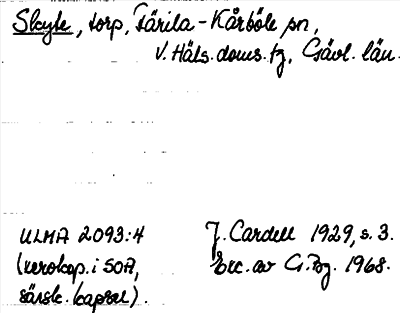 Skyte, torp, Färila-Kårböle sn,
V. Häls. doms. fg, Gävl. län.
ULMA 2093:4
(xerokop. i SOA,
särsk. kapsel).
J. Cardell 1929, s. 3.
Exc. av G. Bg. 1968.